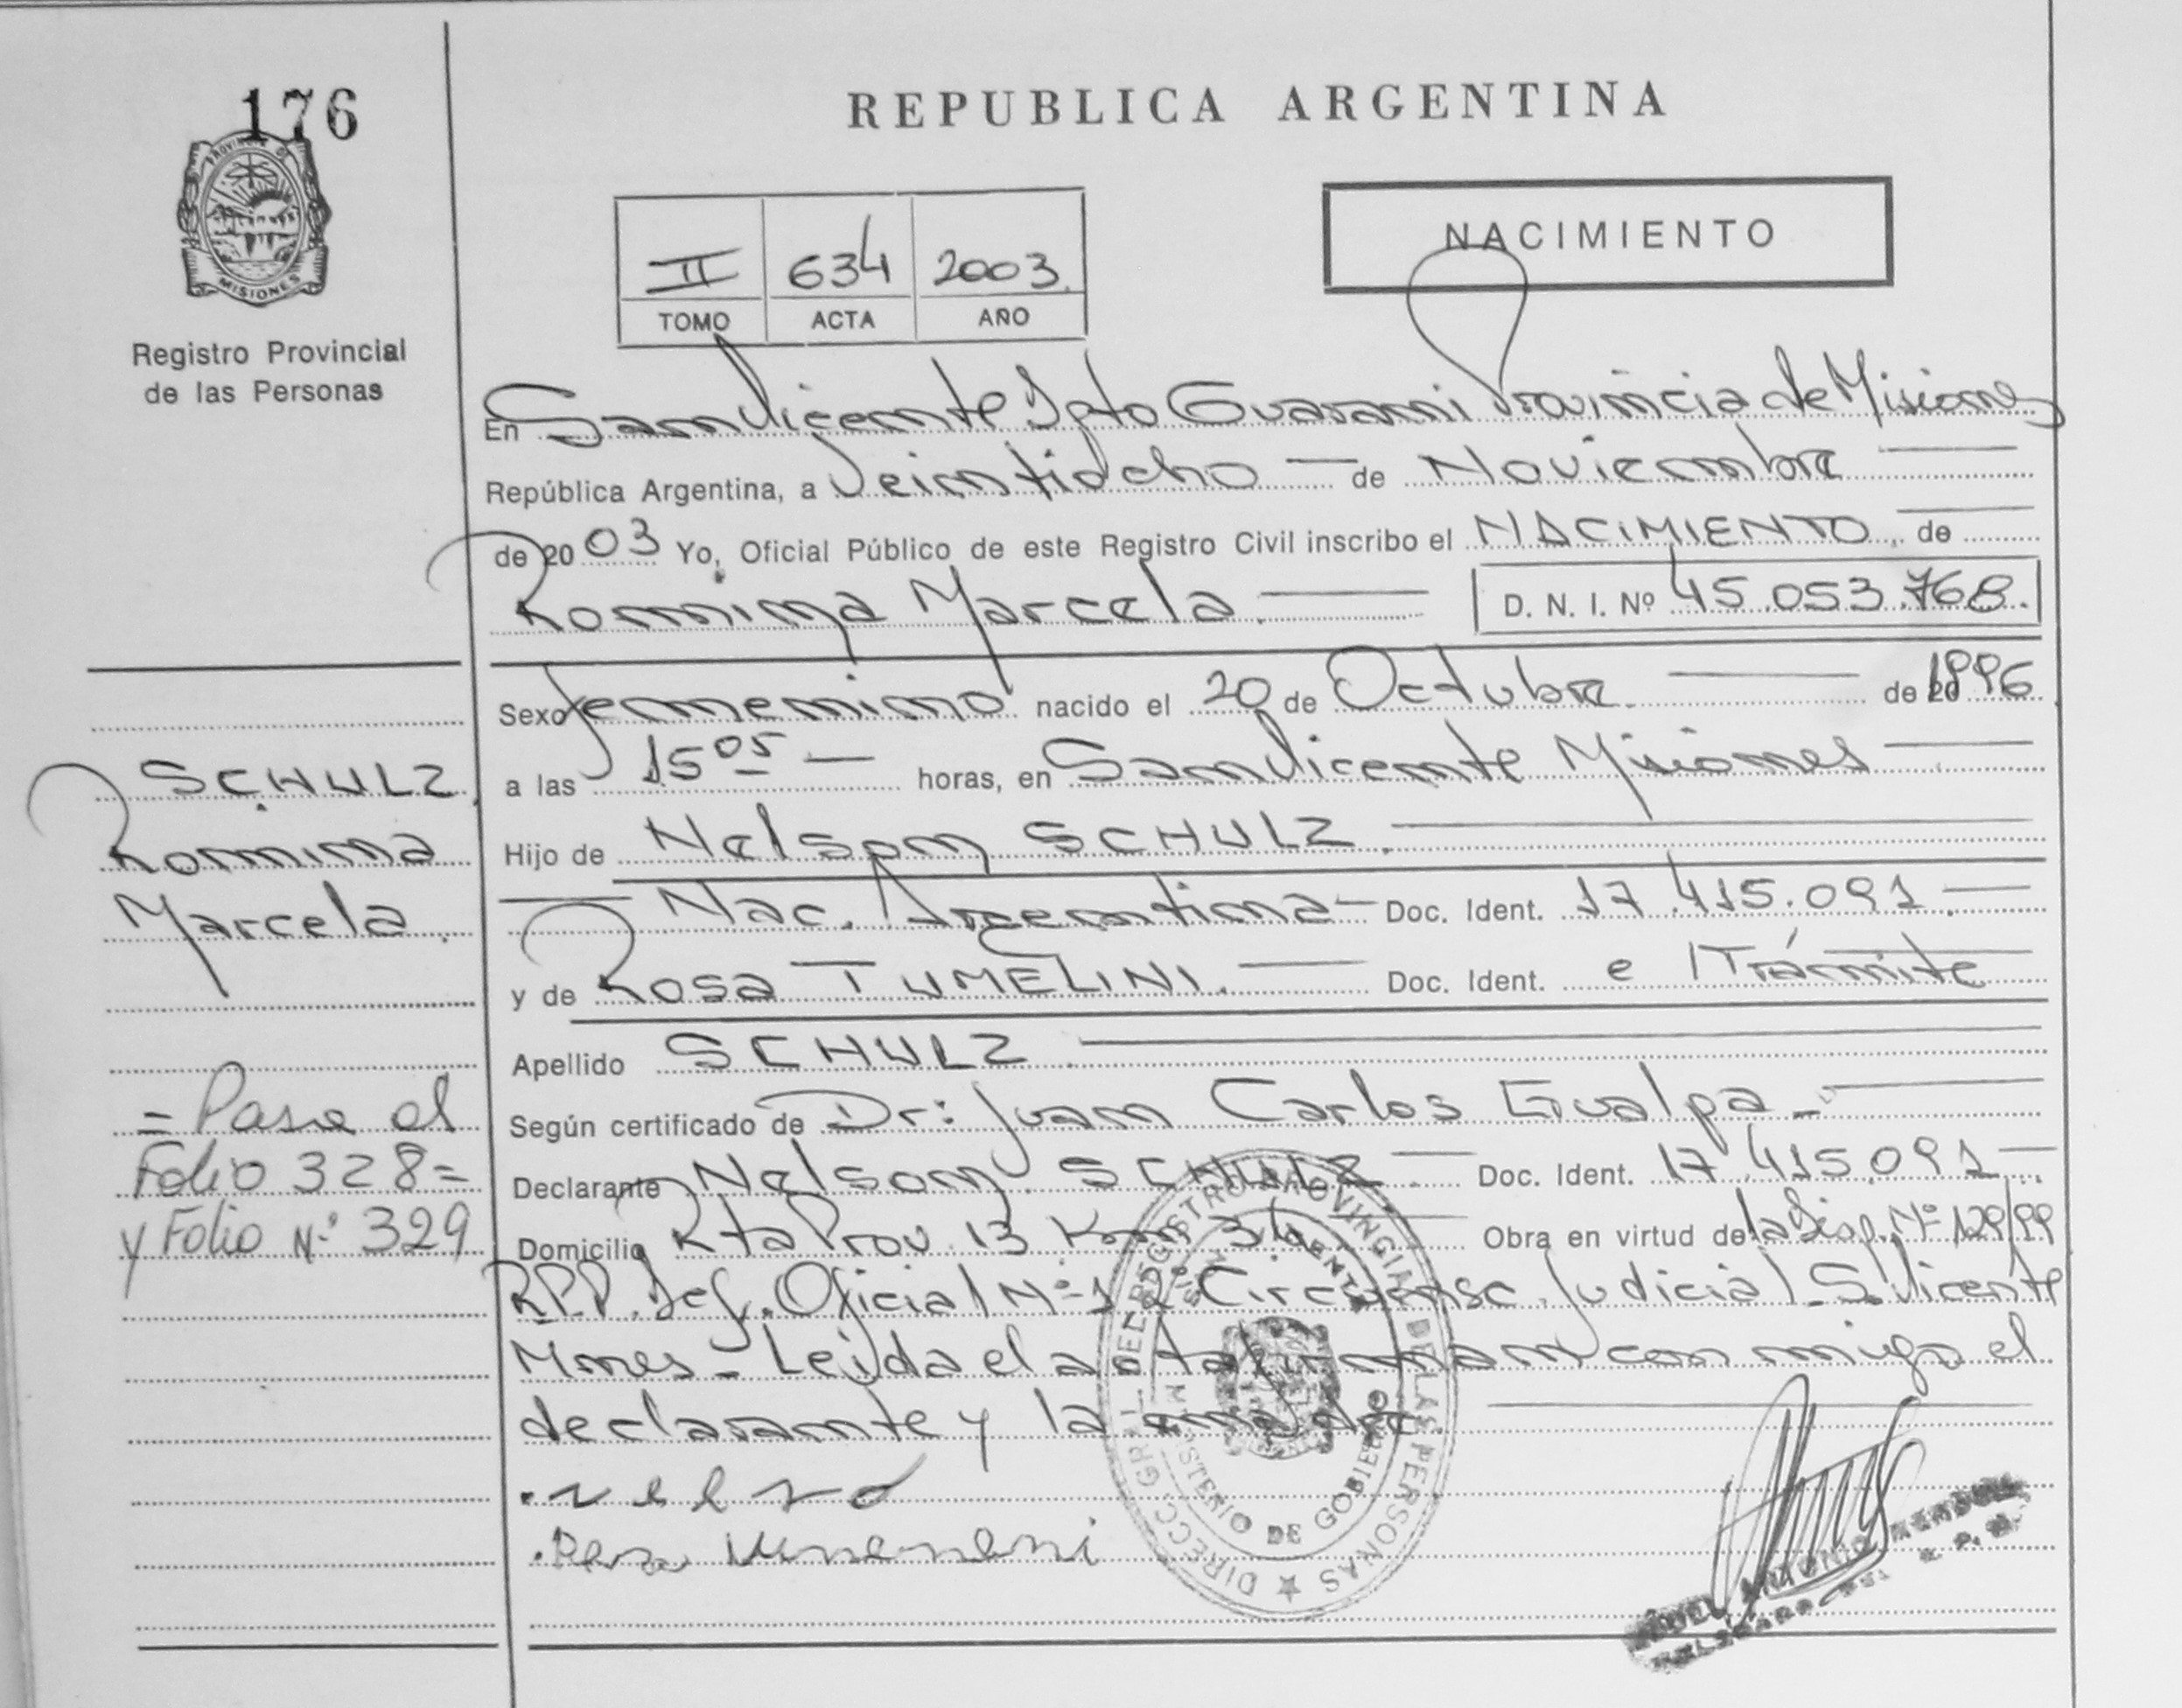 176
PROVINCIA DE
MISIONES
Registro Provincial
de las Personas
REPUBLICA ARGENTINA
II 634 2003.
TOMO ACTA AÑO
NACIMIENTO
En San Vicente Dpto Guarani Provincia de Misiones
República Argentina, a Veintidcho de Noviembre
de 2003 Yo, Oficial Público de este Registro Civil inscribo el NACIMIENTO, de
Rommina Marcela. D. N. I. Nº 45.053.768.
Sexo femenino nacido el 20 de Octubre de 1996
a las 15 05 horas, en San Vicente Misiones
Hijo de Nelson SCHULZ.
Nac. Argentina Doc. Ident. 17.415.091.
y de Rosa TUMELINI. Doc. Ident. e /Trámite
Apellido SCHULZ
Según certificado de Dr: Juan Carlos Gualpa
Declarante Nelson SCHULZ Doc. Ident. 17.415.091
Domicilio Rta Prov. 13 Km 34 Obra en virtud de la Disp. Nº 129/99
R.P.P. Def. Oficial Nº 1 2º Circunsc. Judicial S. Vicente
Mnes - Leída el acta firman conmigo el
declarante y la madre.
SCHULZ
Rommina
Marcela.
= Pasa al
Folio 328=
y Folio Nº 329
DIRECC. GRAL. DEL REGISTRO PROVINCIAL DE LAS PERSONAS
MINISTERIO DE GOBIERNO
ANTONIO